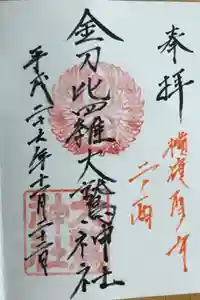 奉拝
横濱酉の市
二の酉
金刀比羅大鷲神社
平成二十六年十一月二十二日